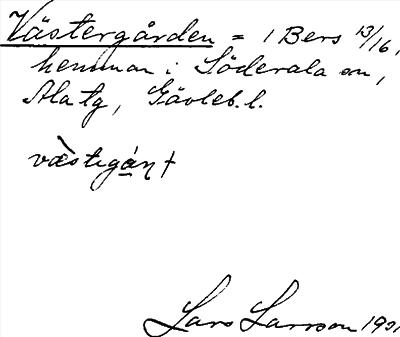 Västergården = 1 Bers 13/16,
hemman i Söderala sn,
Ala tg, Gävleb. l.
Lars Larsson 19